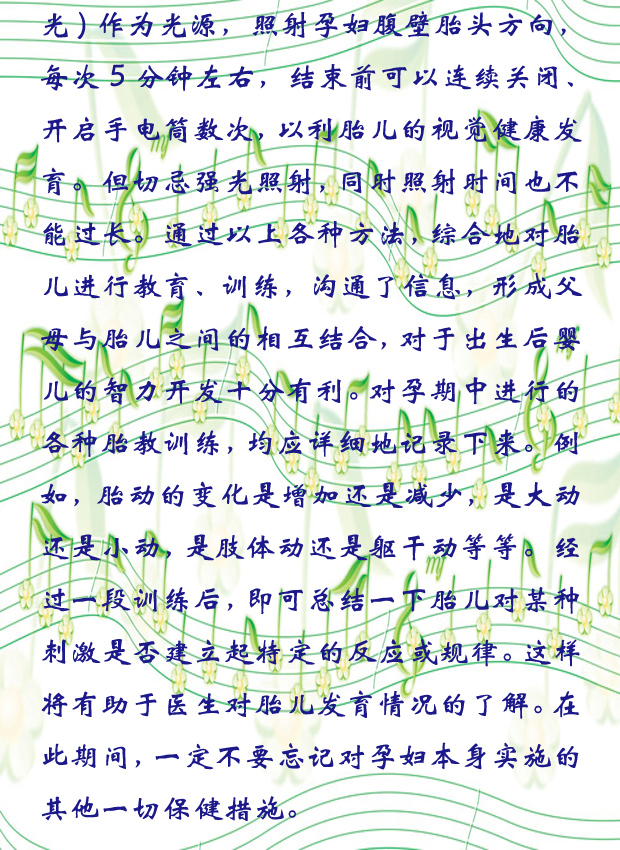 光)作为光源，照射孕妇腹壁胎头方向，
每次5分钟左右，结束前可以连续关闭、
开启手电筒数次，以利胎儿的视觉健康发
育。但切忌强光照射，同时照射时间也不
能过长。通过以上各种方法，综合地对胎
儿进行教育、训练，沟通了信息，形成父
母与胎儿之间的相互结合，对于出生后婴
儿的智力开发十分有利。对孕期中进行的
各种胎教训练，均应详细地记录下来。例
如，胎动的变化是增加还是减少，是大动
还是小动，是肢体动还是躯干动等等。经
过一段训练后，即可总结一下胎儿对某种
刺激是否建立起特定的反应或规律。这样
将有助于医生对胎儿发育情况的了解。在
此期间，一定不要忘记对孕妇本身实施的
其他一切保健措施。